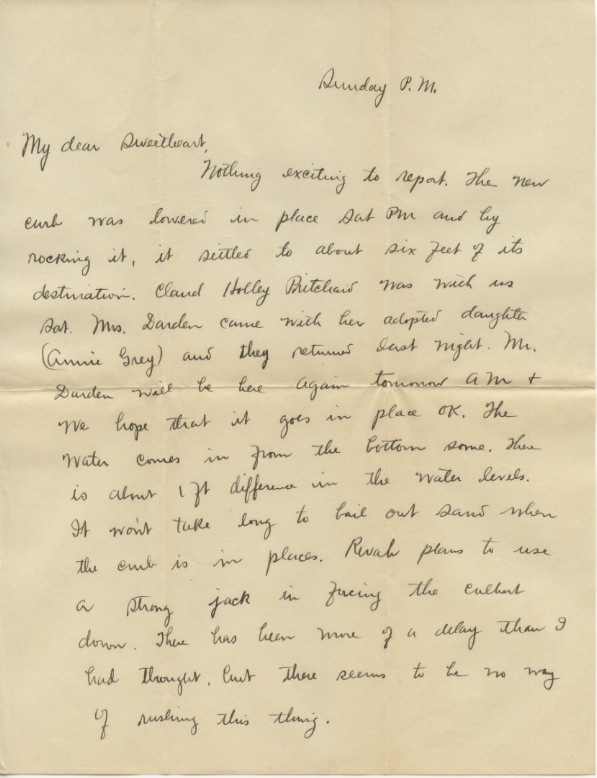 Sunday P.M.
My dear Sweetheart,
Nothing exciting to report. The new
curb was lowered in place Sat PM and by
rocking it, it settled to about six feet of its
destination. Claud Holley Pritchard was with us
Sat. Mrs. Darden came with her adopted daughter
(Annie Grey) and they returned last night. Mr.
Darden will be here again tomorrow AM +
We hope that it goes in place OK. The
Water comes in from the bottom some. There
is about 1 ft difference in the water levels.
It won't take long to bail out sand when
the curb is in places. Rivah plans to use
a strong jack in forcing the culbert
down. There has been more of a delay than I
had thought, but there seems to be no way
of rushing this thing.